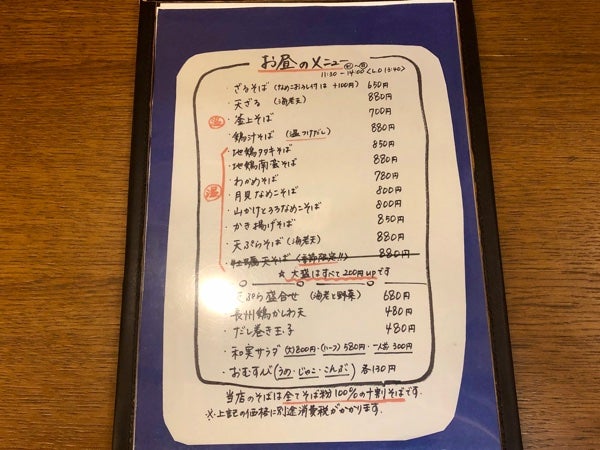 お昼のメニュー
11:30-14:00 (L.O 13:40)
・ざるそば(なめこおろしがけは +100円) 650円
・天ざる (海老天) 880円
温 ・釜上そば 700円
・鶏汁そば (温つけだし) 880円
・地鶏タタキそば 850円
・地鶏南蛮そば 880円
温 ・わかめそば 780円
・月見なめこそば 800円
・山かけとろろなめこそば 800円
・かき揚げそば 850円
・天ぷらそば(海老天) 880円
・牡蠣天そば (季節限定!!) 880円
☆ 大盛はすべて200円upです
・天ぷら盛合せ (海老と野菜) 680円
・長州鶏かしわ天 480円
・だし巻き玉子 480円
・和実サラダ (大)800円・(ハーフ)580円・一人前 300円
・おむすび (うめ・じゃこ・こんぶ) 各130円
当店のそばは全てそば粉100%の十割そばです.
※上記の価格に別途消費税がかかります.